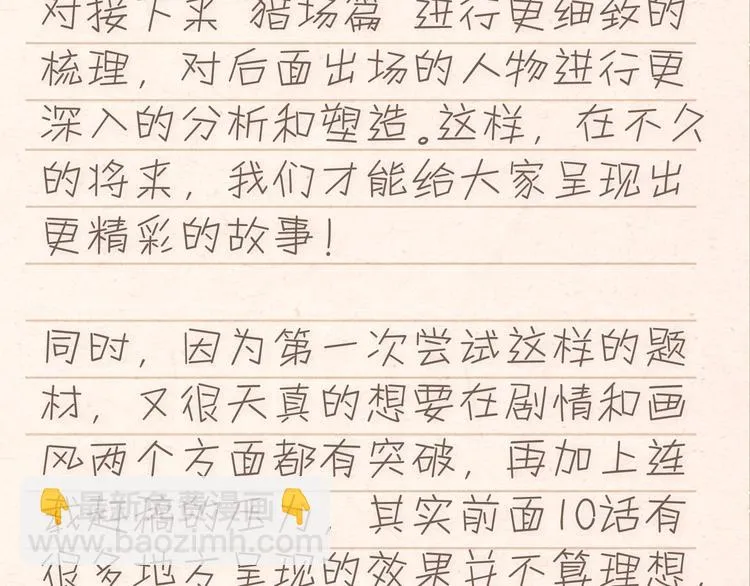 对接下来“猎场篇”进行更细致的
梳理，对后面出场的人物进行更
深入的分析和塑造。这样，在不久
的将来，我们才能给大家呈现出
更精彩的故事！
同时，因为第一次尝试这样的题
材，又很天真的想要在剧情和画
风两个方面都有突破，再加上连
载赶稿的压力，其实前面10话有
👇最新免费漫画👇
www.baozimh.com
很多地方呈现的效果并不算理想，